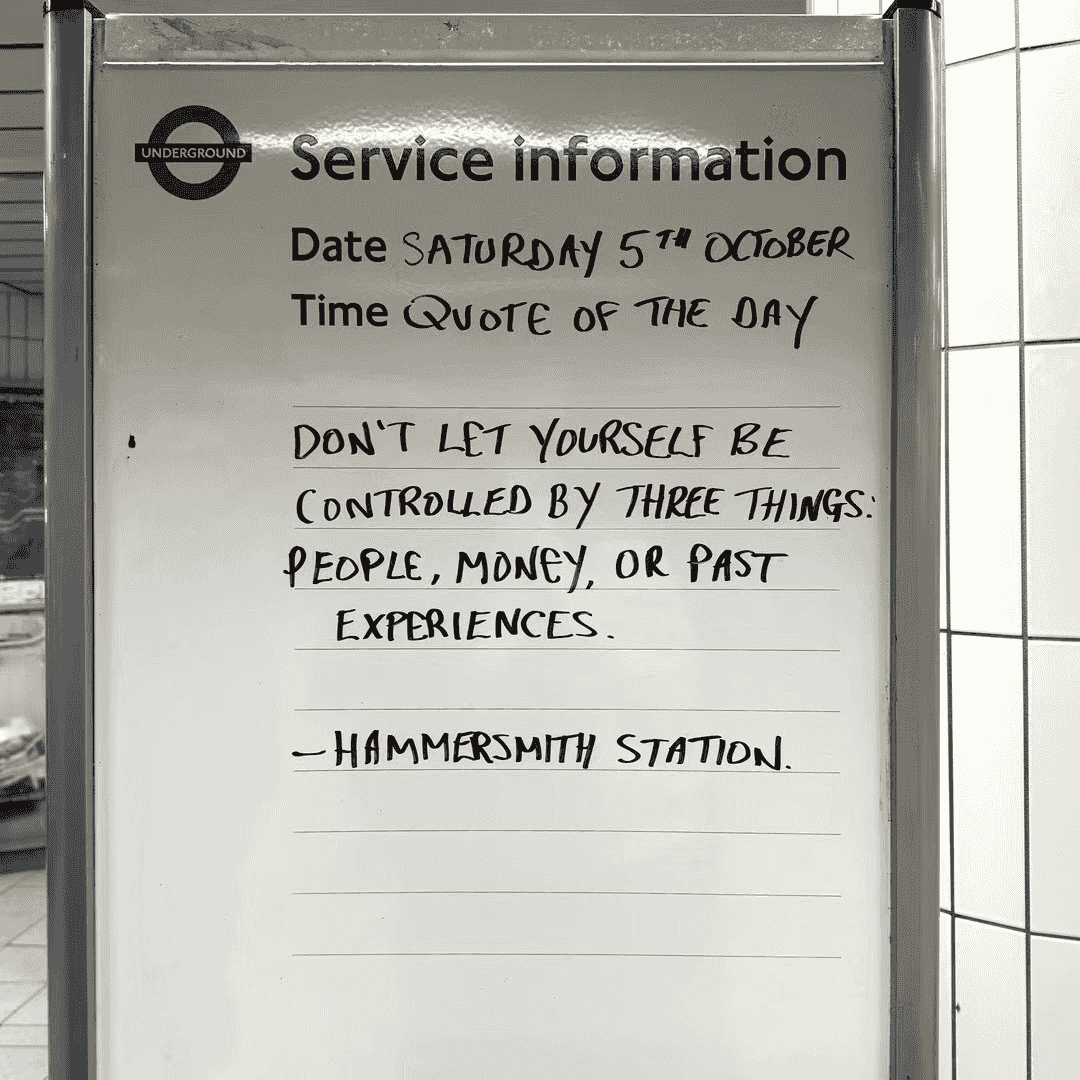 UNDERGROUND
Service information
Date SATURDAY 5TH OCTOBER
Time QUOTE OF THE DAY
DON'T LET YOURSELF BE
CONTROLLED BY THREE THINGS:
PEOPLE, MONEY, OR PAST
EXPERIENCES.
—HAMMERSMITH STATION.